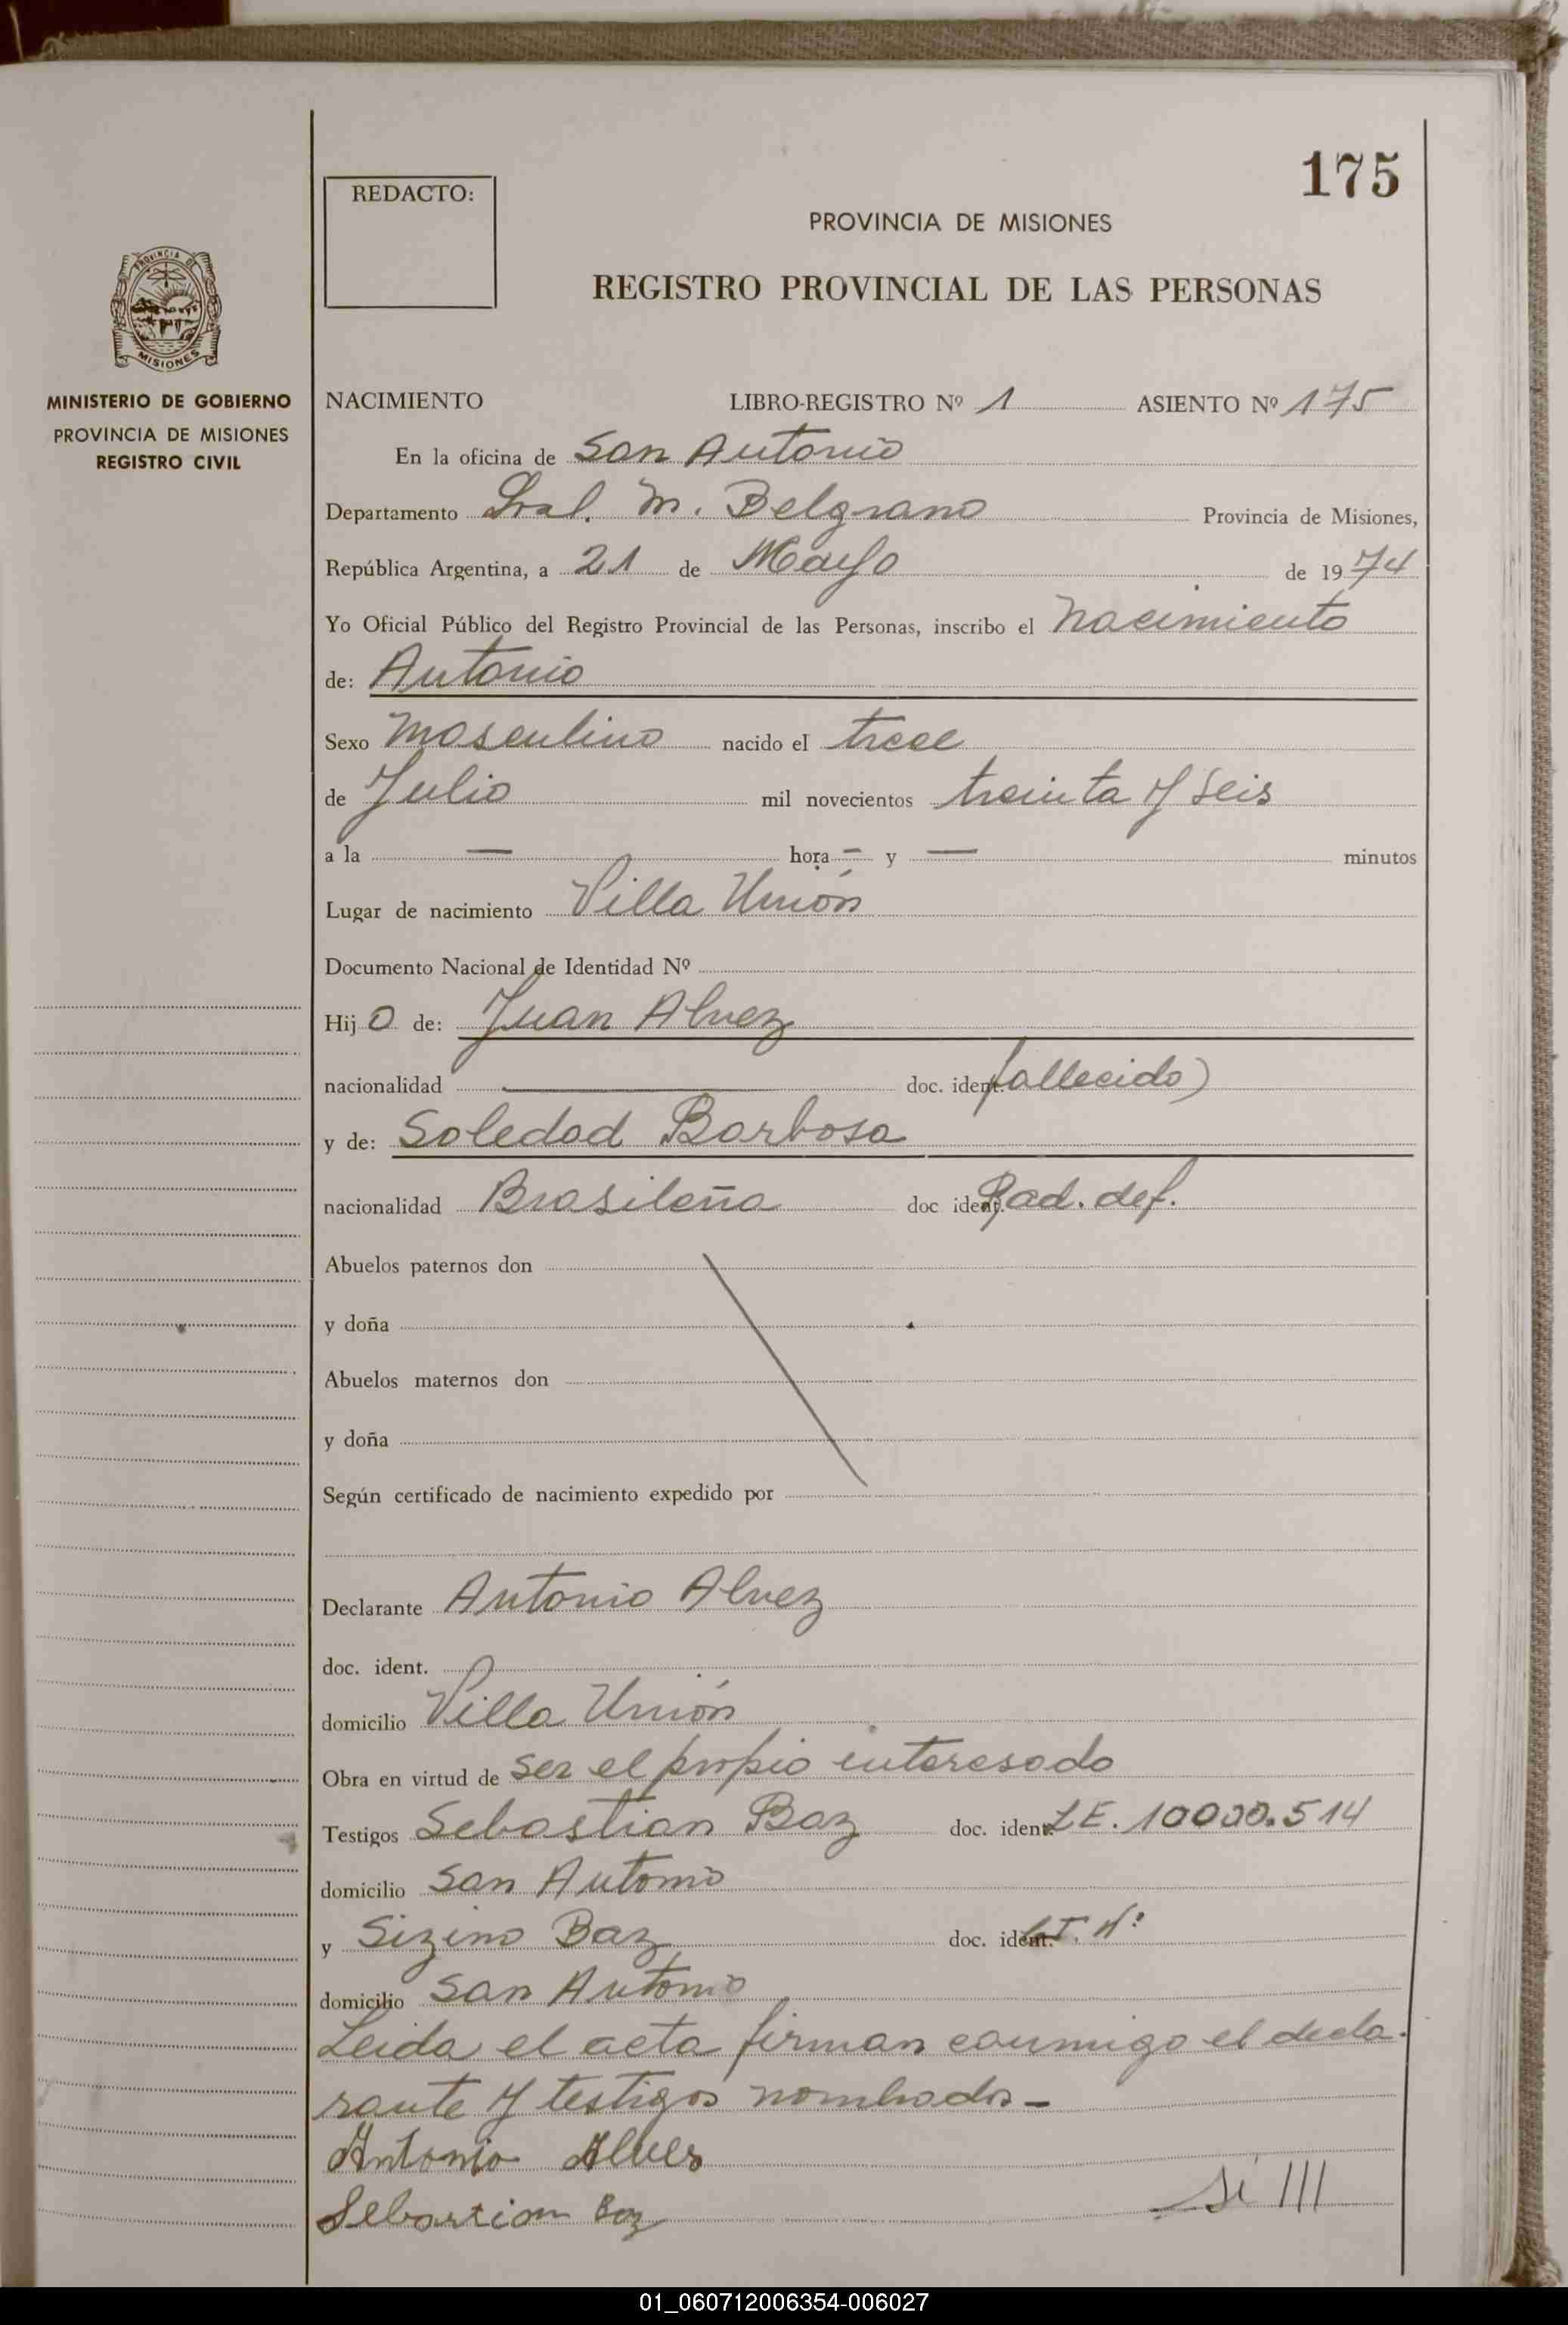 175
REDACTO:
PROVINCIA DE MISIONES
REGISTRO PROVINCIAL DE LAS PERSONAS
PROVINCIA DE
MISIONES
MINISTERIO DE GOBIERNO
PROVINCIA DE MISIONES
REGISTRO CIVIL
NACIMIENTO LIBRO-REGISTRO Nº 1 ASIENTO Nº 175
En la oficina de San Antonio
Departamento Gral. M. Belgrano Provincia de Misiones,
República Argentina, a 21 de Mayo de 1974
Yo Oficial Público del Registro Provincial de las Personas, inscribo el Nacimiento
de: Antonio
Sexo Masculino nacido el trece
de Julio mil novecientos treinta y seis
a la — hora — y — minutos
Lugar de nacimiento Villa Unión
Documento Nacional de Identidad Nº
Hijo de: Juan Alvez
nacionalidad — doc. ident. fallecido)
y de: Soledad Barbosa
nacionalidad Brasileña doc ident. Rad. def.
Abuelos paternos don
y doña
Abuelos maternos don
y doña
Según certificado de nacimiento expedido por
Declarante Antonio Alvez
doc. ident.
domicilio Villa Unión
Obra en virtud de ser el propio interesado
Testigos Sebastian Baz doc. ident. L.E. 10000.514
domicilio San Antonio
y Sizino Baz doc. ident. Nº
domicilio San Antonio
Leida el acta firman conmigo el decla-
rante y testigos nombrados -
Antonio Alves
Sebastian Baz
01_060712006354-006027